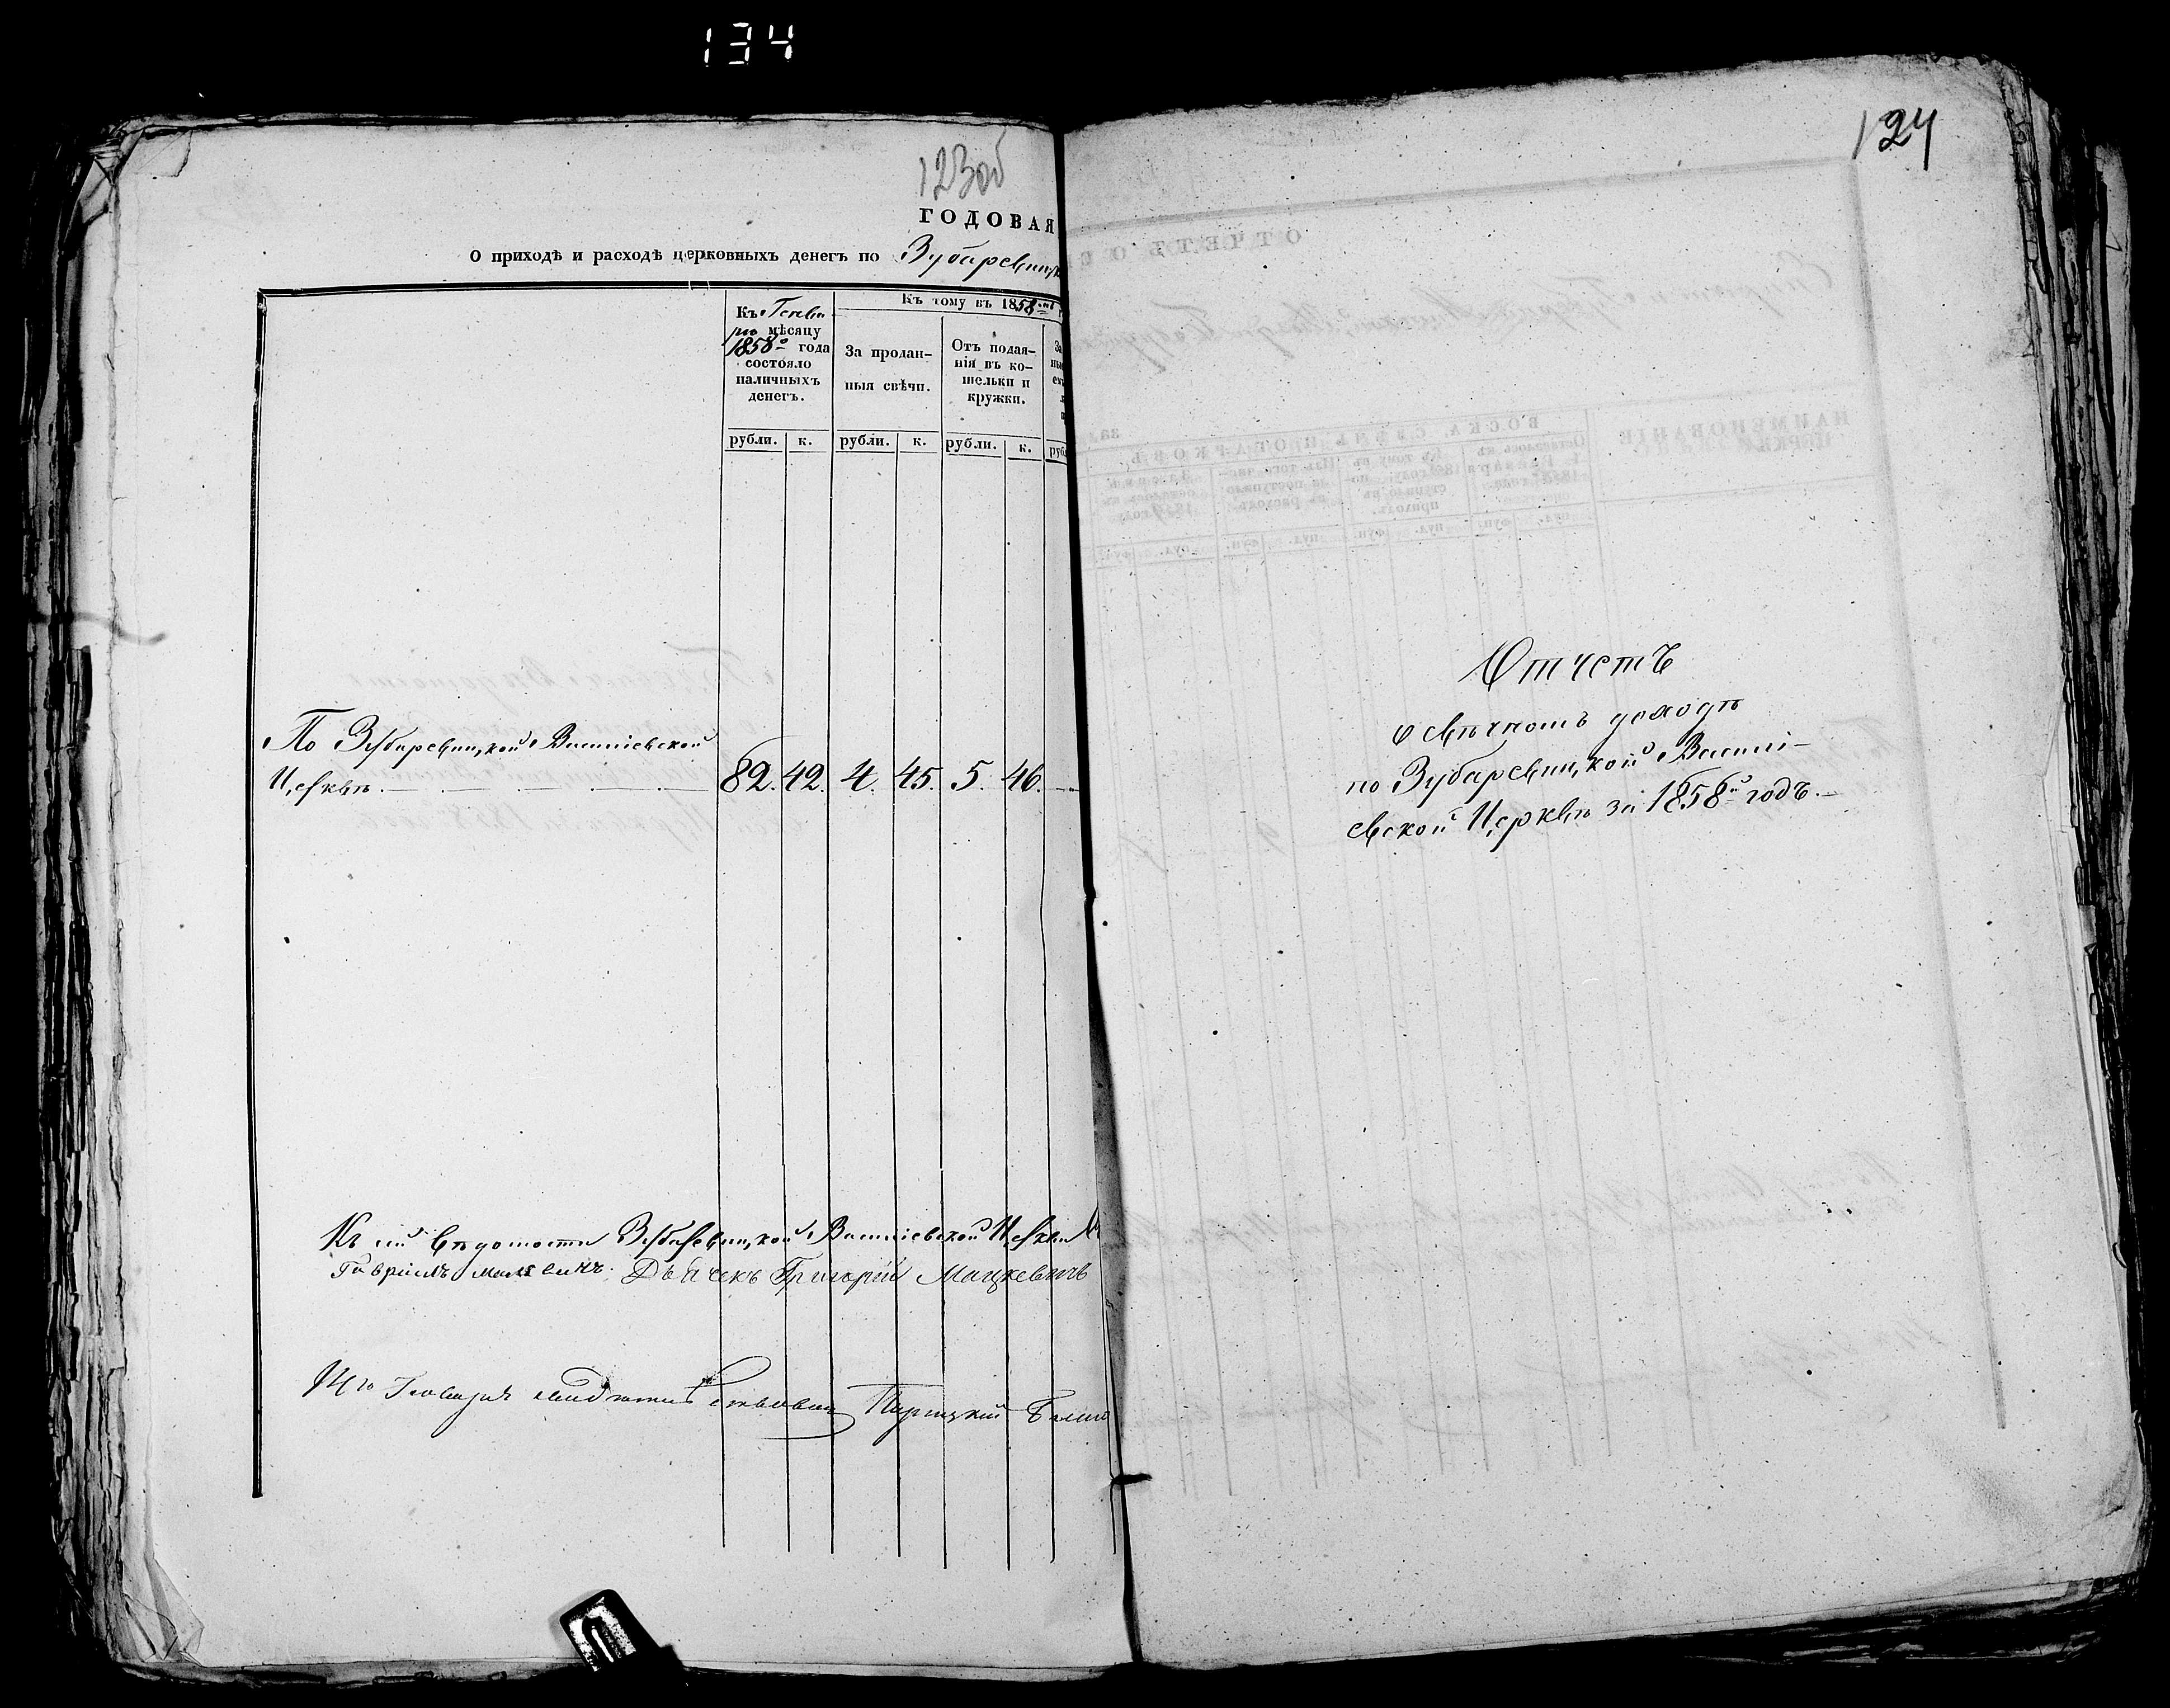 134
123об
ГОДОВАЯ
О приходѣ и расходѣ церковныхъ денегъ по Зубаревицк
Къ Генва
рю мѣсяцу
1858º года
состояло
наличныхъ
денегъ.
Къ тому въ 1858мъ г
За продан-
ныя свѣчи.
Отъ подая-
нія въ ко-
шельки и
кружки.
рубли. к. рубли. к. рубли. к. руб
По Зубаревицкой Василіевской
Церквѣ. 82. 42. 4. 45. 5. 46.
Къ сей вѣдомости Зубаревицкой Василіевской Церкви
Гавріилъ Дьячекъ Григорій Мацкевичъ
Что Парицкій
124
Отчетъ
о свѣчномъ доходѣ
по Зубаревицкой Василі-
евской Церквѣ за 1858й годъ.